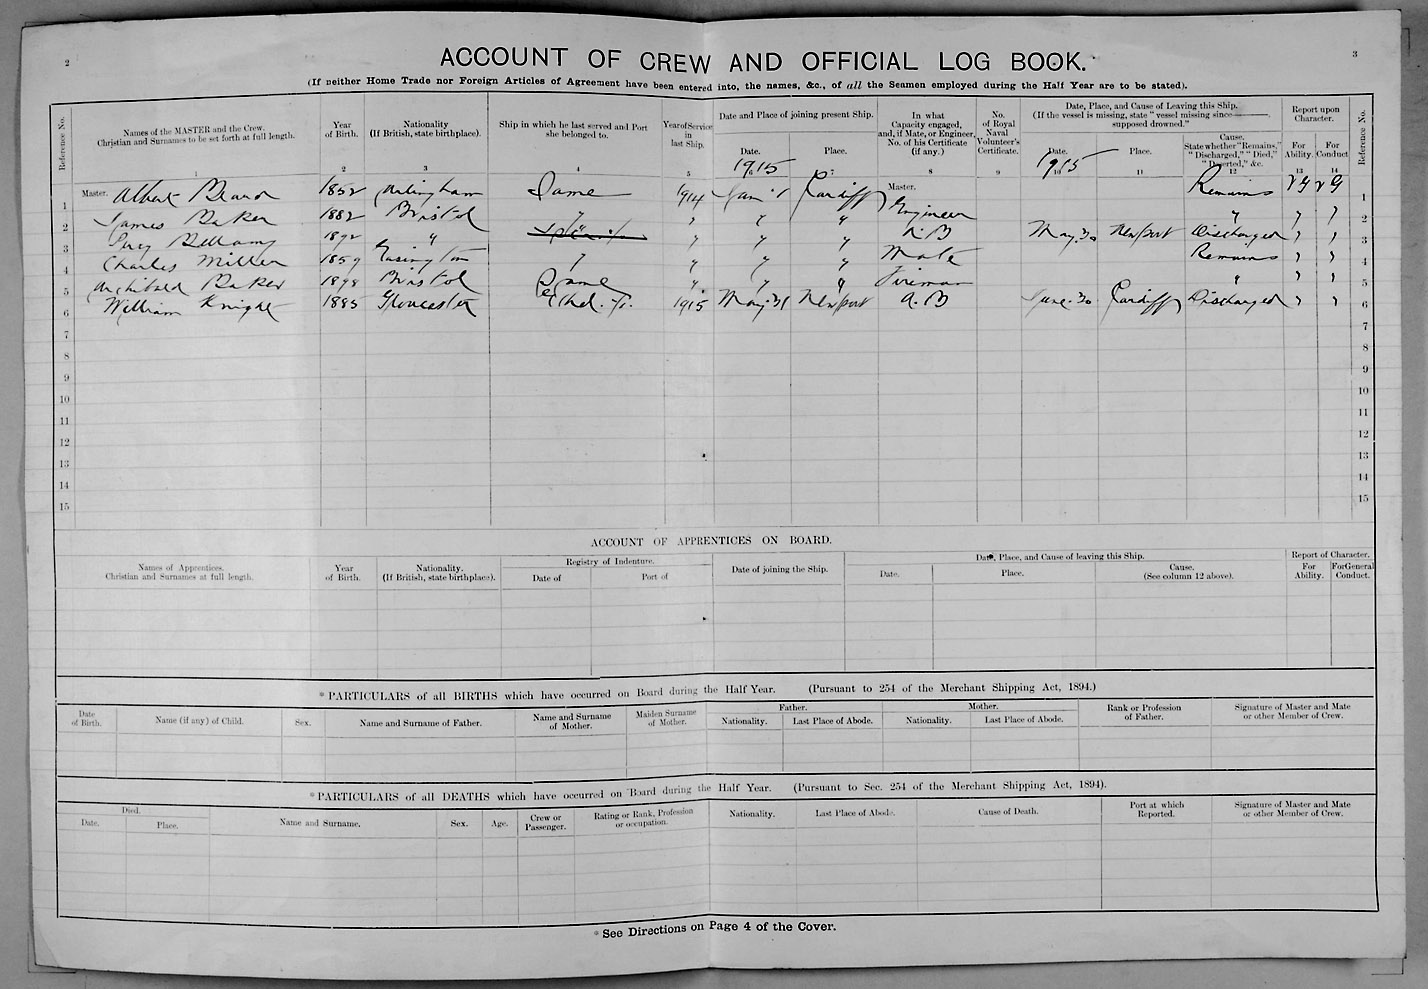 2
3
ACCOUNT OF CREW AND OFFICIAL LOG BOOK.
(If neither Home Trade nor Foreign Articles of Agreement have been entered into, the names, &c., of all the Seamen employed during the Half Year are to be stated).
Reference No.
Names of the MASTER and the Crew.
Christian and Surnames to be set forth at full length.
1
Year of Birth.
2
Nationality
(If British, state birthplace).
3
Ship in which he last served and Port she belonged to.
4
Year of Service in last Ship.
5
Date and Place of joining present Ship.
Date.
1915
6
Place.
7
In what Capacity engaged, and, if Mate, or Engineer, No. of his Certificate (if any.)
8
No. of Royal Naval Volunteer's Certificate.
9
Date, Place, and Cause of Leaving this Ship.
(If the vessel is missing, state "vessel missing since ———, supposed drowned."
Date.
1915
10
Place.
11
Cause.
State whether "Remains," "Discharged," "Died," "Deserted," &c.
12
Report upon Character.
For Ability.
13
For Conduct
14
Reference No.
1 Master. Albert Beard 1852 Arlingham Same 1914 Jan 1 Cardiff Master. Remains VG VG 1
2 James Baker 1882 Bristol " " " " Engineer " " " 2
3 Percy Bellamy 1892 " " " " A.B May 30 Newport Discharged " " 3
4 Charles Miller 1859 " " " " Mate Remains " " 4
5 Archibald Baker 1898 Bristol Same " " " Fireman " " " 5
6 William Knight 1883 Gloucester Ethel 1915 May 31 Newport A.B June 30 Cardiff Discharged " " 6
7 7
8 8
9 9
10 10
11 11
12 12
13 13
14 14
15 15
ACCOUNT OF APPRENTICES ON BOARD.
Names of Apprentices.
Christian and Surnames at full length.
Year of Birth.
Nationality.
(If British, state birthplace).
Registry of Indenture.
Date of
Port of
Date of joining the Ship.
Date, Place, and Cause of leaving this Ship.
Date.
Place.
Cause.
(See column 12 above).
Report of Character.
For Ability.
For General Conduct.
*PARTICULARS of all BIRTHS which have occurred on Board during the Half Year. (Pursuant to 254 of the Merchant Shipping Act, 1894.)
Date of Birth.
Name (if any) of Child.
Sex.
Name and Surname of Father.
Name and Surname of Mother.
Maiden Surname of Mother.
Father.
Nationality.
Last Place of Abode.
Mother.
Nationality.
Last Place of Abode.
Rank or Profession of Father.
Signature of Master and Mate or other Member of Crew.
*PARTICULARS of all DEATHS which have occurred on Board during the Half Year. (Pursuant to Sec. 254 of the Merchant Shipping Act, 1894).
Died.
Date.
Place.
Name and Surname.
Sex.
Age.
Crew or Passenger.
Rating or Rank, Profession or occupation.
Nationality.
Last Place of Abode.
Cause of Death.
Port at which Reported.
Signature of Master and Mate or other Member of Crew.
*See Directions on Page 4 of the Cover.